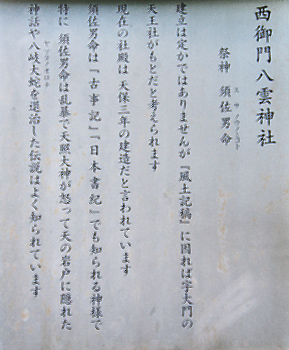 西御門 八雲神社
祭神 須佐男命
スサノウノミコト
建立は定かではありませんが『風土記稿』に因れば字大門の
天王社がもとだと考えられます
現在の社殿は天保三年の建造だと言われています
須佐男命は『古事記』『日本書紀』でも知られる神様で
特に須佐男命は乱暴で天照大神が怒って天の岩戸に隠れた
神話や八岐大蛇を退治した伝説はよく知られています
ヤマタノオロチ